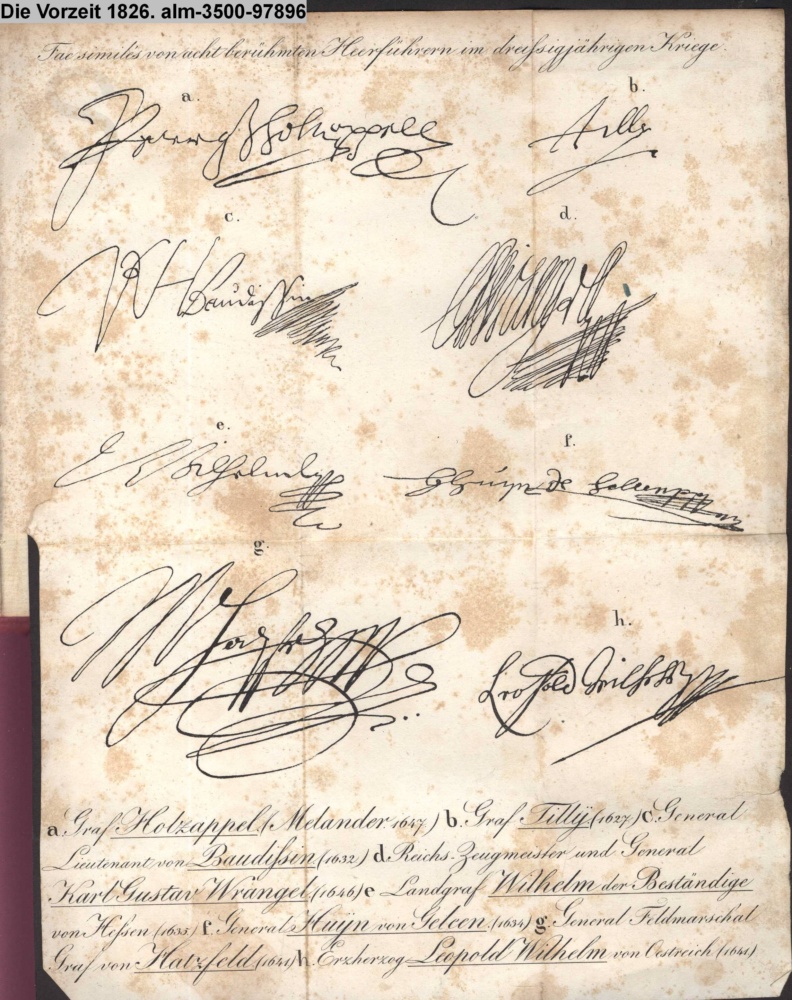 Die Vorzeit 1826. alm-3500-97896
Fac similés von acht berühmten Heerführern im dreißigjährigen Kriege.
a. b.
Holtzappell Tilly
c. d.
Baudissin
e. f.
Wilhelm Huijn de
g. h.
Leopold Wilhelm
a Graf Holzappel (Melander, 1647) b. Graf Tillÿ (1627) c. General
Lieutenant von Baudißin (1632) d Reichs-Zeugmeister und General
Karl Gustav Wrangel (1646) e Landgraf Wilhelm der Beständige
von Heßen (1635) f. General Huÿn von Geleen (1634) g. General Feldmarschal
Graf von Hatzfeld (1641) h. Erzherzog Leopold Wilhelm von Oestreich (1641)